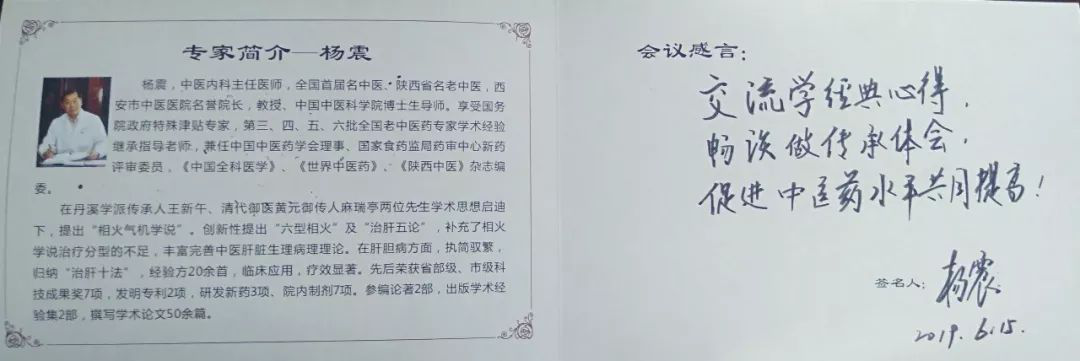 专家简介—杨震
杨震，中医内科主任医师，全国首届名中医、陕西省名老中医，西
安市中医医院名誉院长，教授、中国中医科学院博士生导师。享受国务
院政府特殊津贴专家，第三、四、五、六批全国老中医药专家学术经验
继承指导老师，兼任中国中医药学会理事、国家食药监局药审中心新药
评审委员，《中国全科医学》、《世界中医药》、《陕西中医》杂志编
委。
在丹溪学派传承人王新午、清代御医黄元御传人麻瑞亭两位先生学术思想启迪
下，提出“相火气机学说”。创新性提出“六型相火”及“治肝五论”，补充了相火
学说治疗分型的不足，丰富完善中医肝脏生理病理理论。在肝胆病方面，执简驭繁，
归纳“治肝十法”，经验方20余首，临床应用，疗效显著。先后荣获省部级、市级科
技成果奖7项，发明专利2项，研发新药3项、院内制剂7项。参编论著2部，出版学术经
验集2部，撰写学术论文50余篇。
会议感言：
交流学经典心得，
畅谈做传承体会，
促进中医药水平共同提高！
签名人：杨震
2019.6.15.